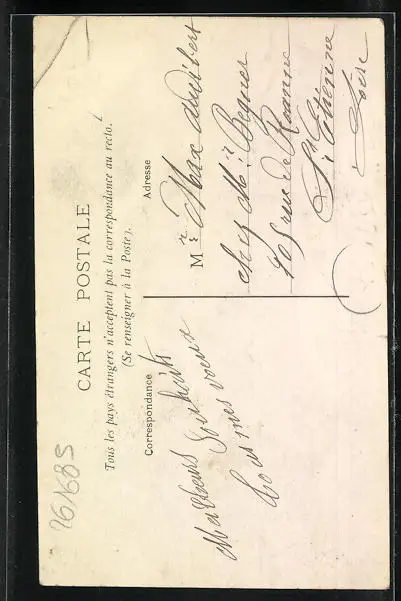 CARTE POSTALE
Tous les pays étrangers n'acceptent pas la correspondance au recto.
(Se renseigner à la Poste).
Correspondance
Meilleurs Souhaits
Tous mes voeux
Adresse
Mr Max
chez Mr
rue de Roanne
St Etienne
Loire
261685